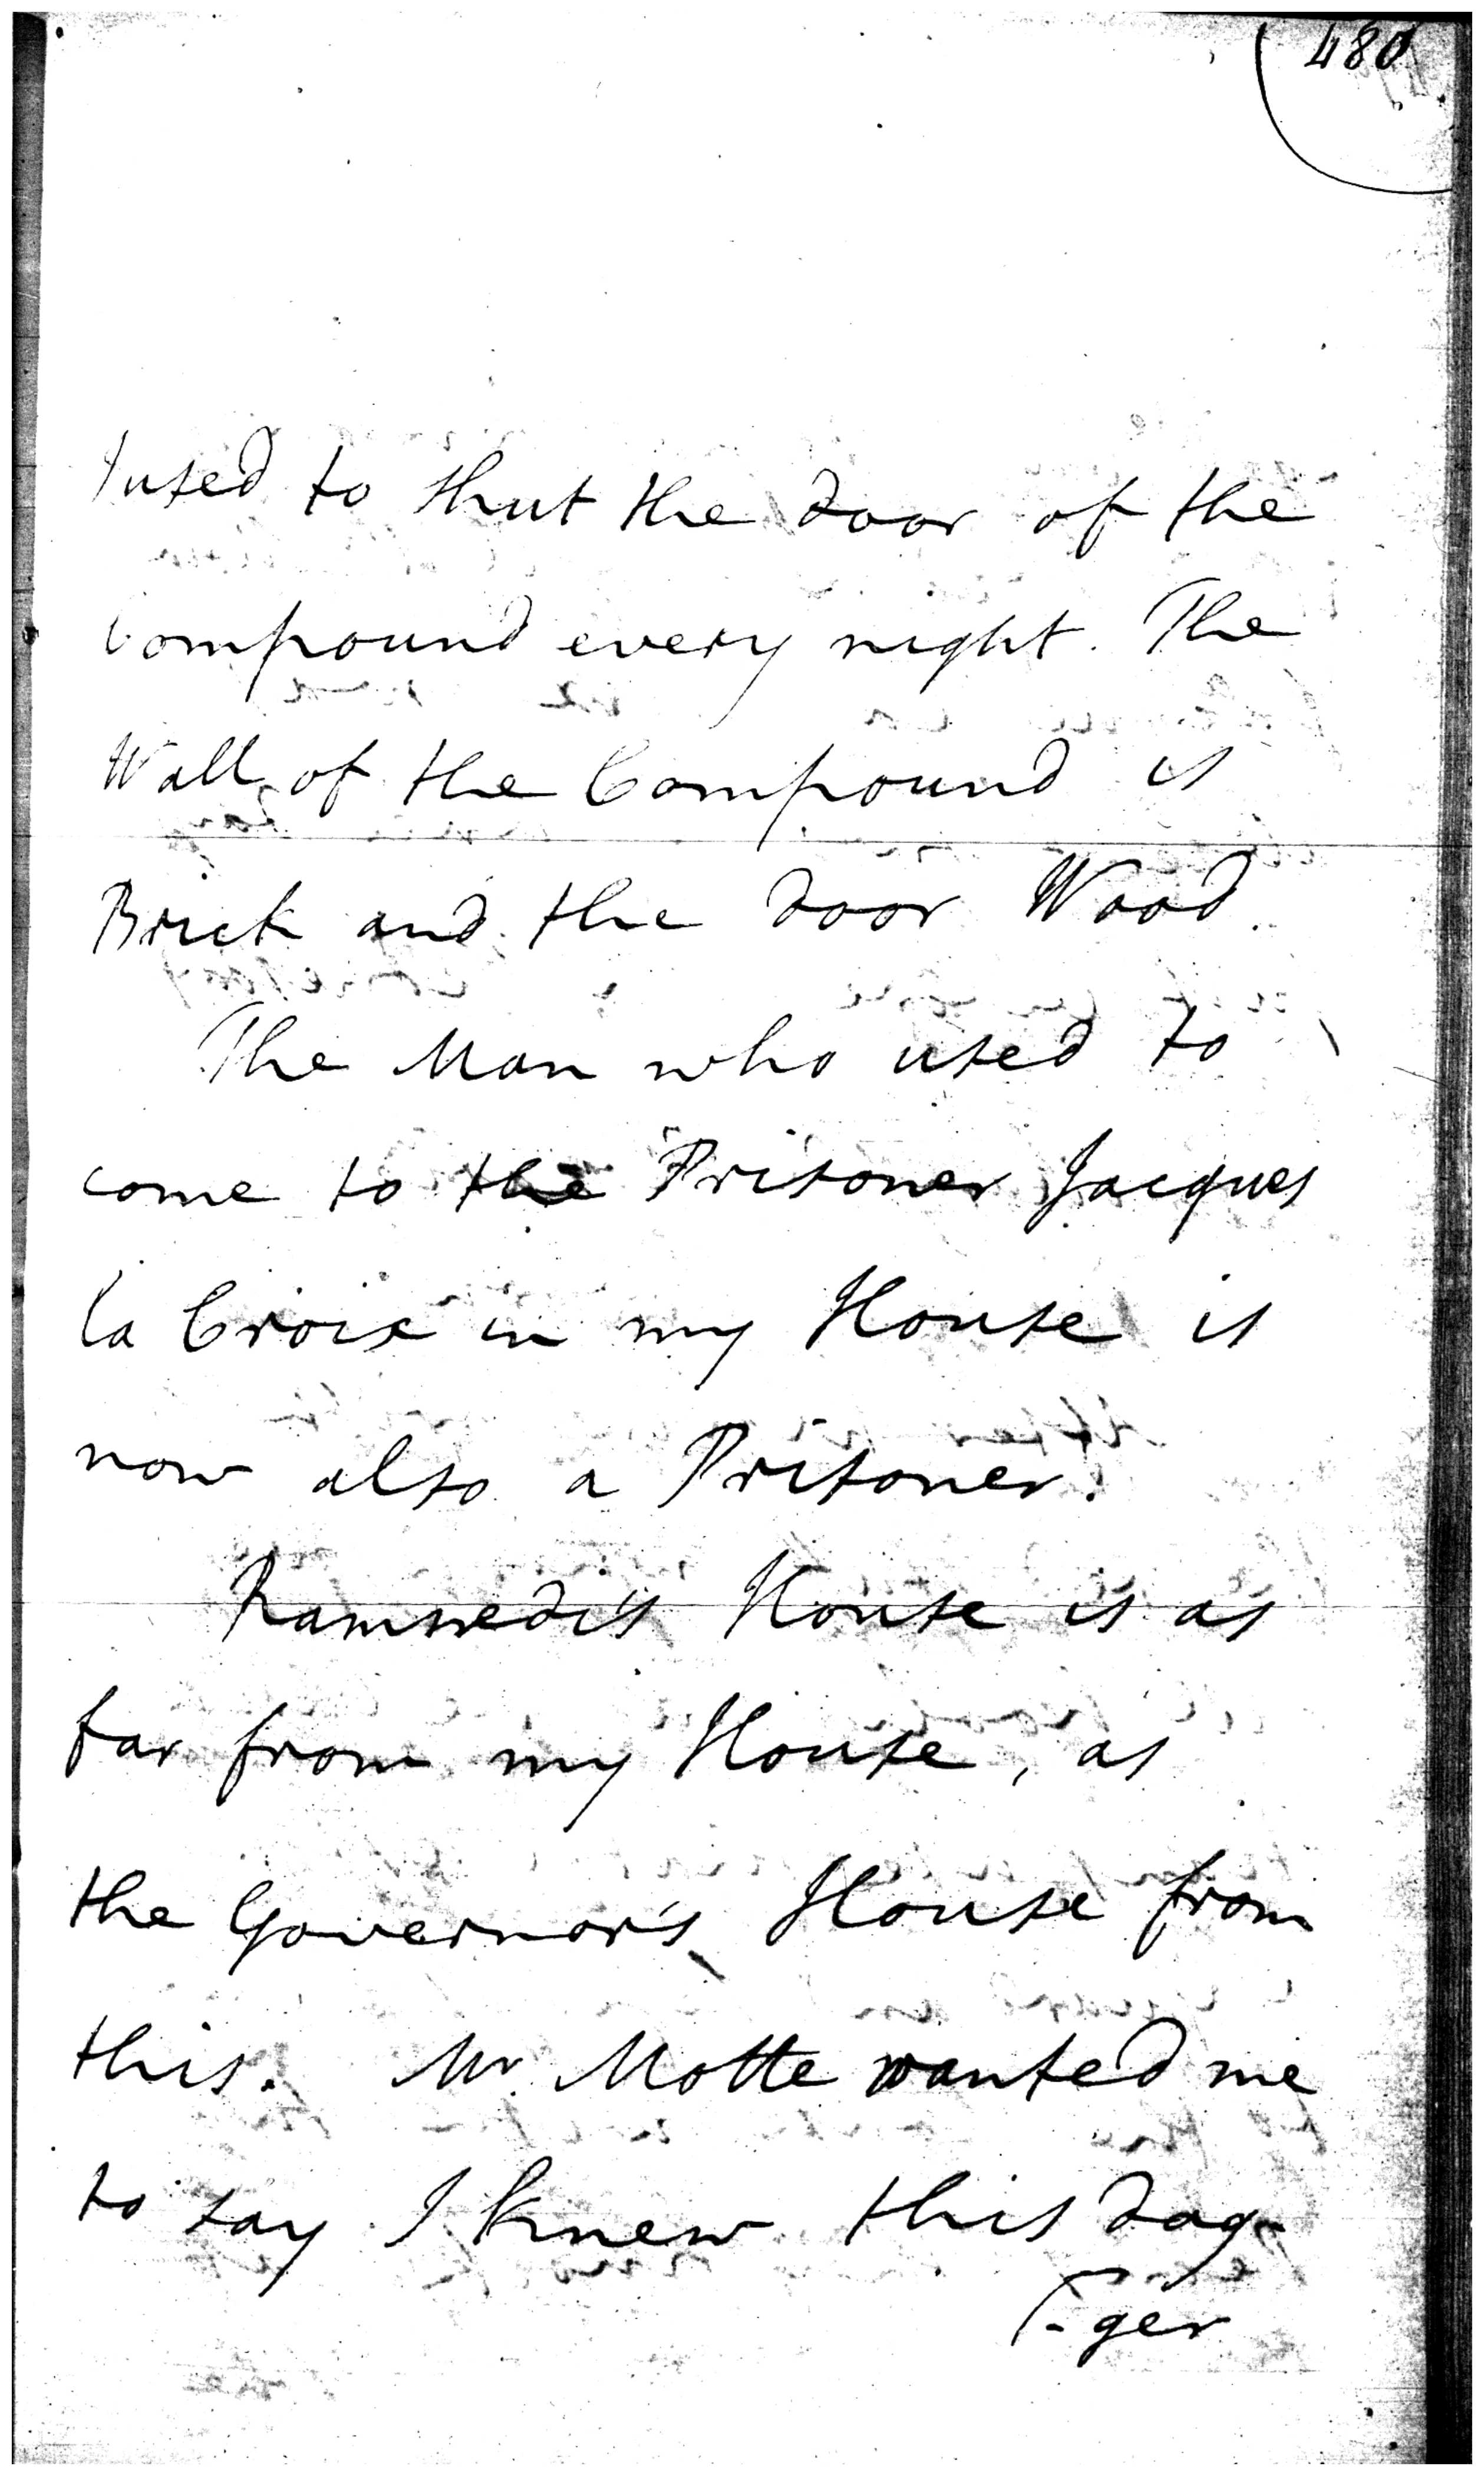 480
I used to shut the door of the
Compound every night. The
Wall of the Compound is
Brick and the door Wood.
The Man who used to
come to the Prisoner Jacques
La Croix in my House is
now also a Prisoner.
House is as
far from my House, as
the Governor's House from
this. Mr. Motte wanted me
to say I knew this dag-
-ger